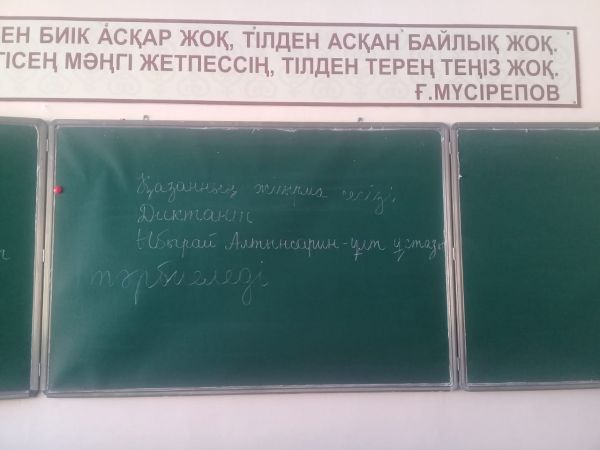 ЕН БИІК АСҚАР ЖОҚ, ТІЛДЕН АСҚАН БАЙЛЫҚ ЖОҚ.
ТІСЕҢ МӘҢГІ ЖЕТПЕССІҢ, ТІЛДЕН ТЕРЕҢ ТЕҢІЗ ЖОҚ.
Ғ.МҮСІРЕПОВ
Қазанның жиырма сегізі.
Диктант
Ыбырай Алтынсарин-ұлт ұстазы
тәрбиеледі